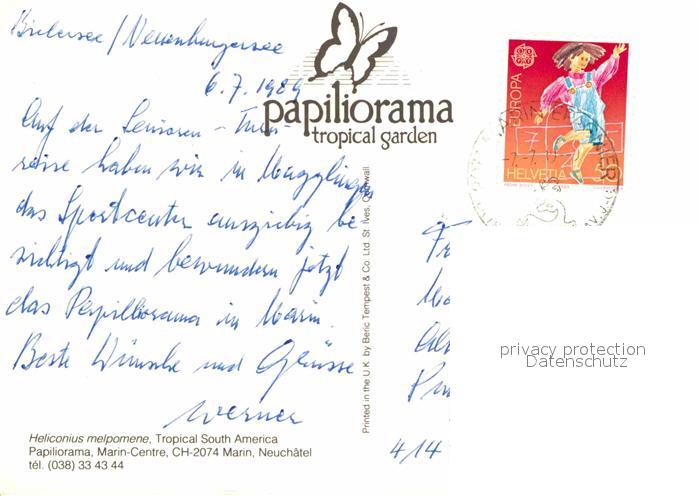 Bielersee / Neuenburgersee
6.7.1989
papiliorama
tropical garden
Auf der Senioren-Turn-
reise haben wir in Magglingen
das Sportcenter ausgiebig be
sichtigt und bewundern jetzt
das Papilliorama in Marin.
Beste Wünsche und Grüsse
Werner
Heliconius melpomene, Tropical South America
Papiliorama, Marin-Centre, CH-2074 Marin, Neuchâtel
tél. (038) 33 43 44
Printed in the U.K. by Beric Tempest & Co. Ltd. St. Ives, Cornwall
EUROPA
HELVETIA
Fr
414
privacy protection
Datenschutz